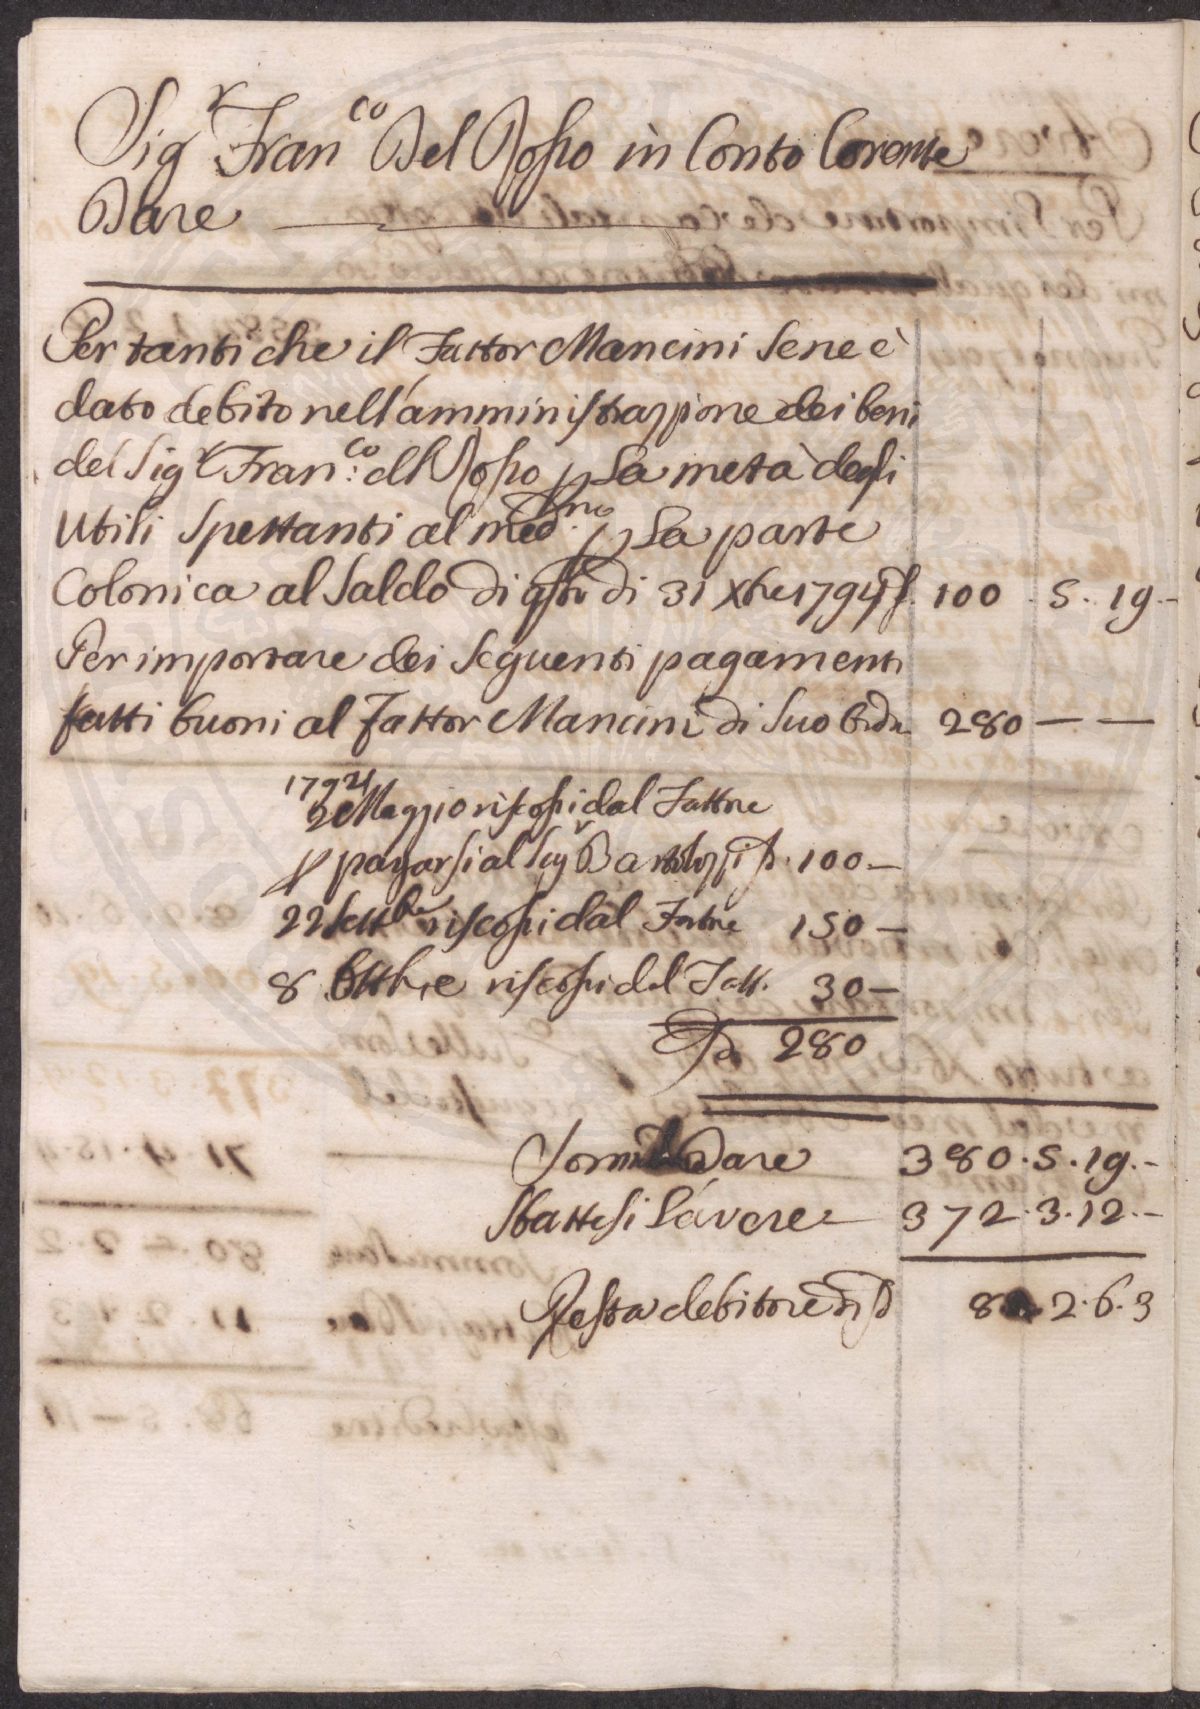 Sig.r Fran.co Del Rosso in Conto Corente
Dare
Per tanti che il Fattor Mancini Sene è
dato debito nell'amministrazzione dei beni
del Sig.r Fran.co del Rosso p La metà degli
Utili Spettanti al med.mo p La parte
Colonica al Saldo di qsto di 31 Xbre 1794 100 . 5 . 19 . -
Per importare dei Seguenti pagamenti
fatti buoni al Fattor Mancini di Suo Ordn 280 — —
1794
2 Maggio riscossi dal Fattore
p pagarsi al Sig.r Bartolozzi 100 —
22 Settbre riscossi dal Fattore 150 —
8 Ottbre riscossi dal Fatt. 30 —
280
Somma Dare 380 . 5 . 19 . -
Sbattesi L'avere 372 . 3 . 12 . -
Resta debitore di 8 . 2 . 6 . 3